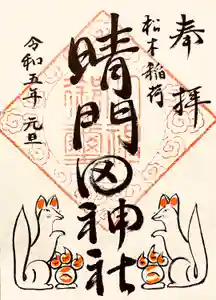 奉拝
松本稲荷
晴門田神社
令和五年 元旦